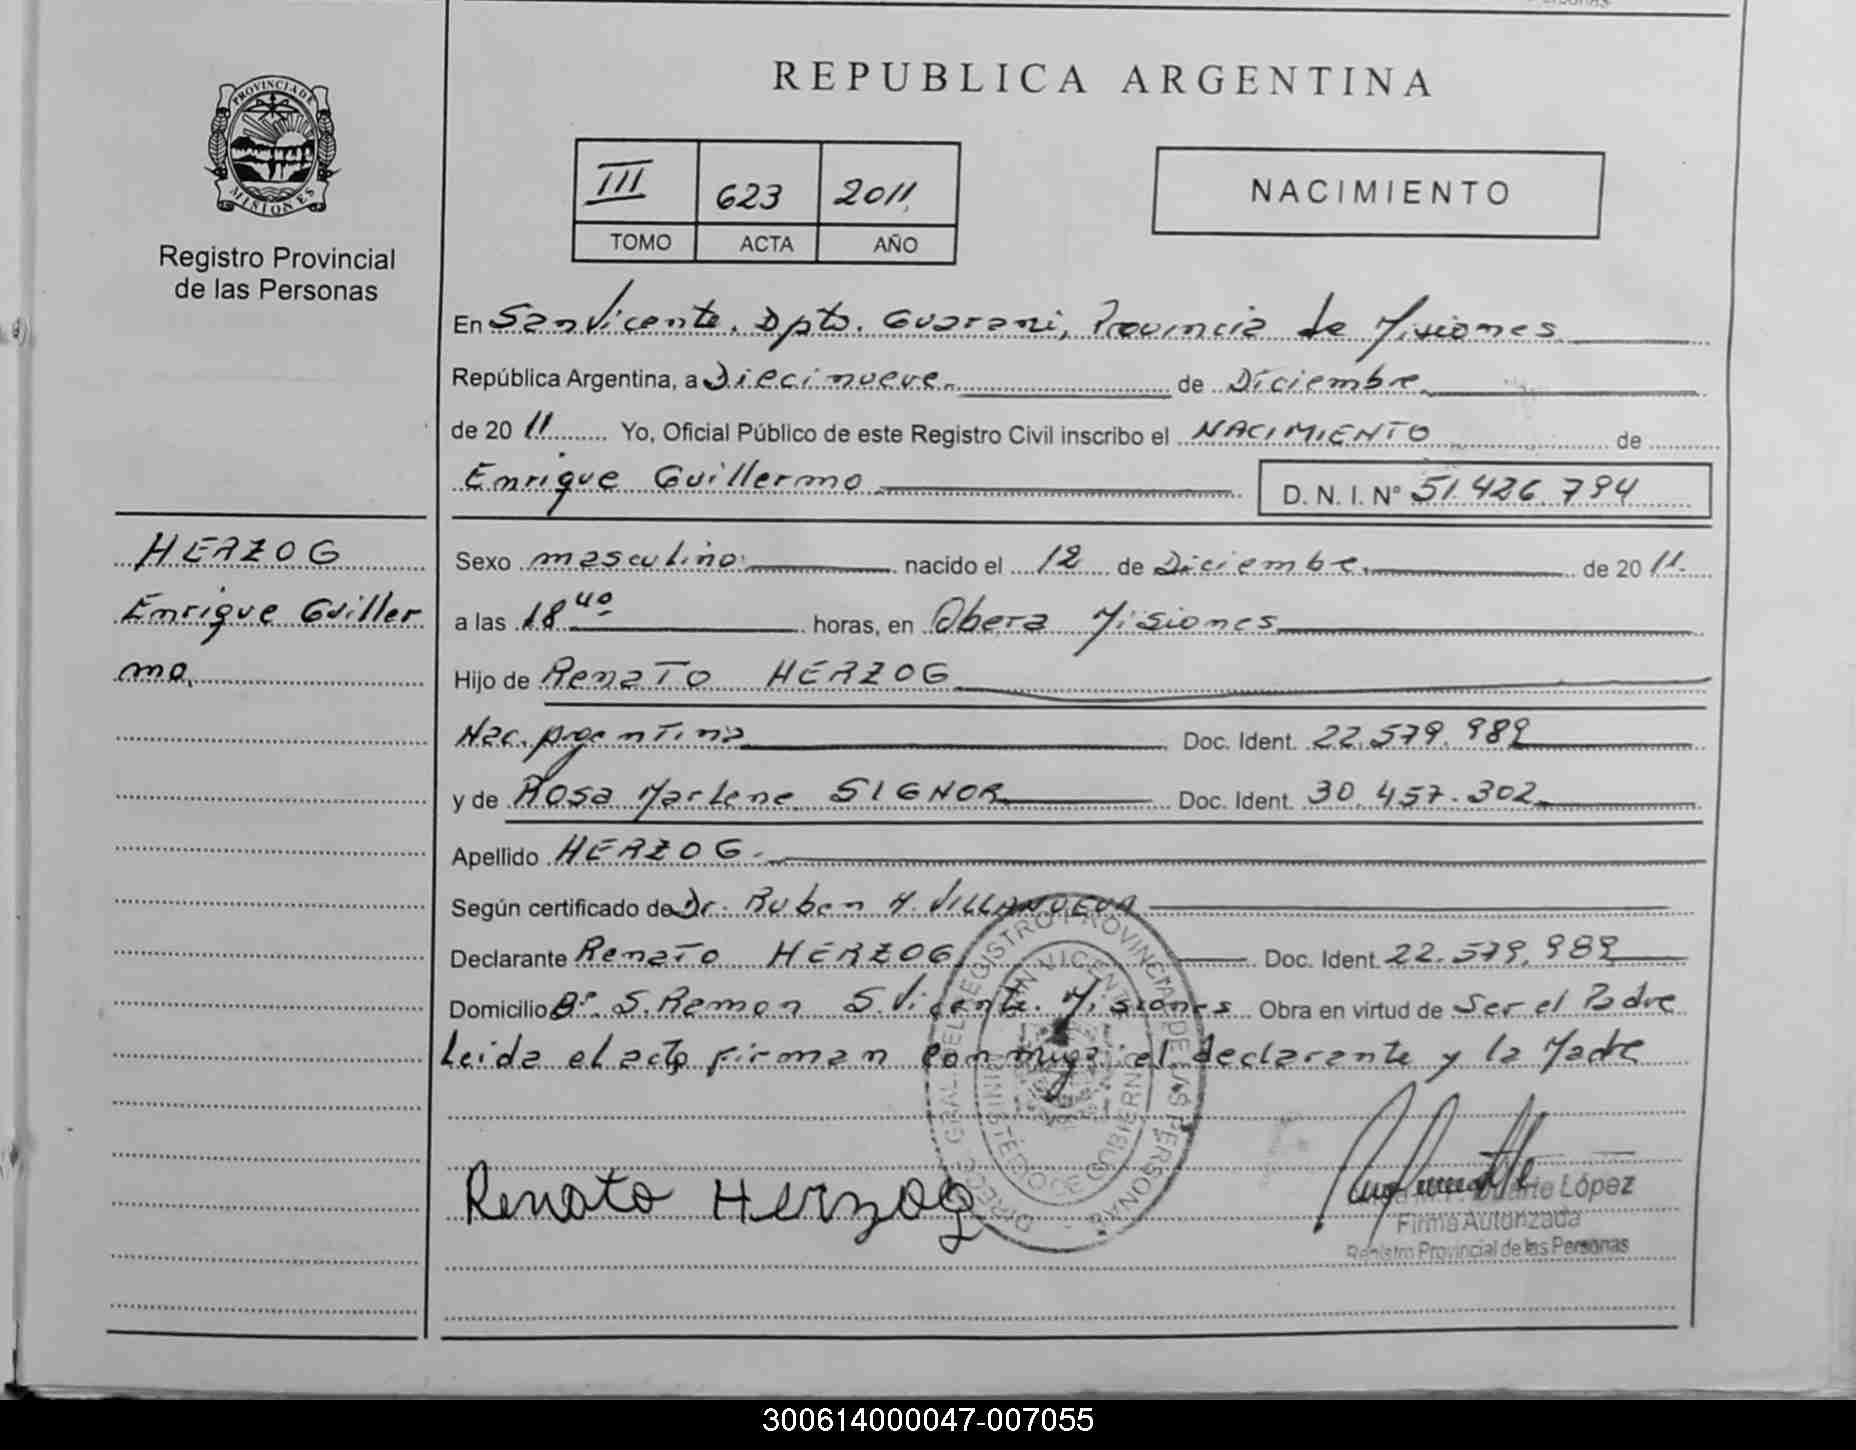 PROVINCIA DE
MISIONES
Registro Provincial
de las Personas
HERZOG
Enrique Guiller
mo.
REPUBLICA ARGENTINA
III 623 2011
TOMO ACTA AÑO
NACIMIENTO
En San Vicente, Dpto. Guarani, Provincia de Misiones
República Argentina, a Diecinueve de Diciembre
de 20 11 Yo, Oficial Público de este Registro Civil inscribo el NACIMIENTO de
Enrique Guillermo D. N. I. Nº 51.426.794
Sexo masculino nacido el 12 de Diciembre de 20 11.
a las 18 40 horas, en Obera Misiones
Hijo de Renato HERZOG
Nac. Argentina Doc. Ident. 22.579.989
y de Rosa Marlene SIGNOR Doc. Ident. 30.457.302
Apellido HERZOG.
Según certificado de Dr. Ruben A. VILLANUEVA
Declarante Renato HERZOG Doc. Ident. 22.579.989
Domicilio Bº. S. Ramon S. Vicente. Misiones Obra en virtud de Ser el Padre
Leida el acta firman conmigo el declarante y la Madre
Renato Herzog
Duarte López
Firma Autorizada
Registro Provincial de las Personas
300614000047-007055